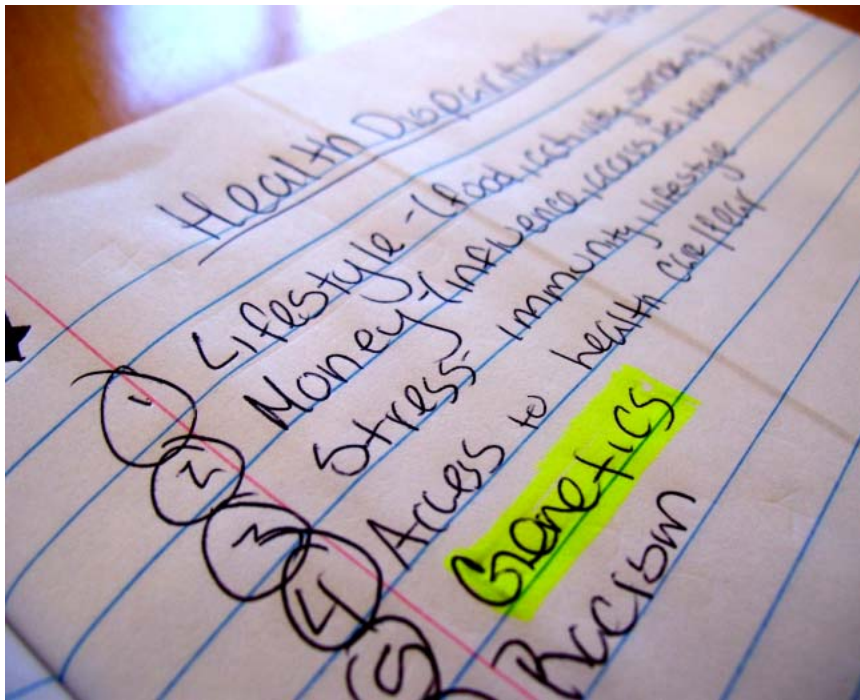 Health Disparities
1 Lifestyle - (food, activity,
2 Money - (influence, access to
3 Stress - immunity, lifestyle
4 Access to health care/fear
5 Genetics
Racism